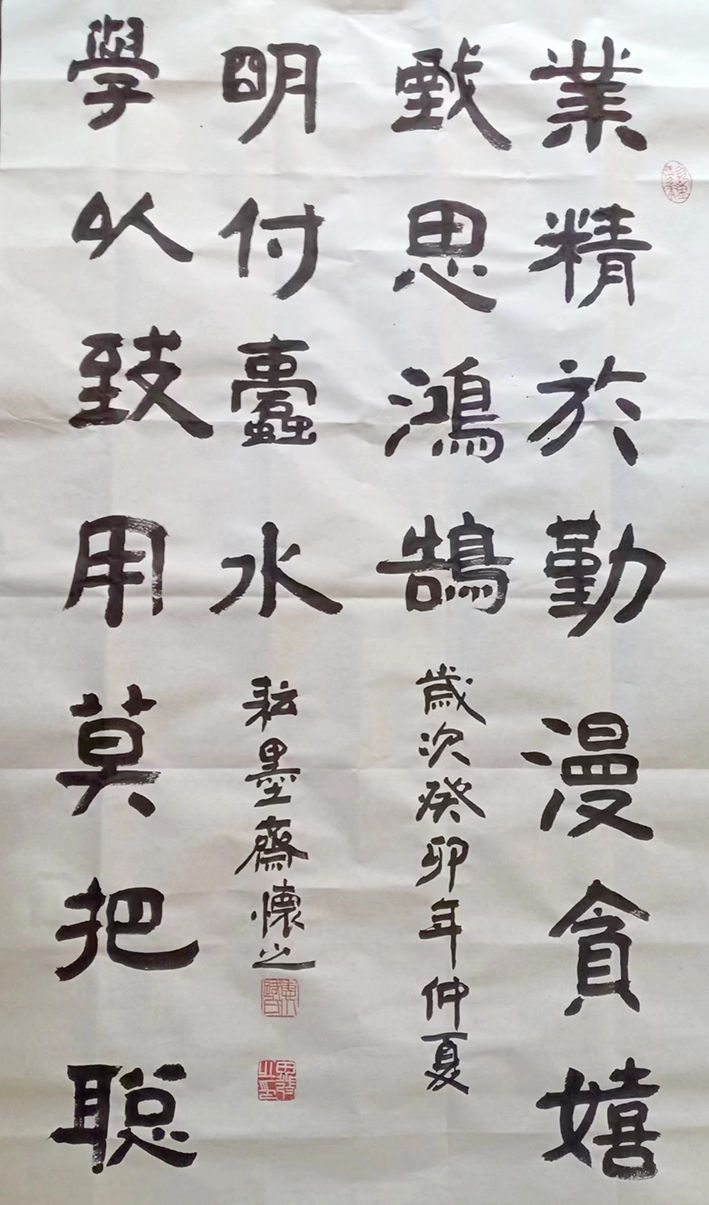 業精於勤漫貪嬉
戲思鴻鵠
歲次癸卯年仲夏
學以致用莫把聰
明付蠹水
耘墨齋懷之